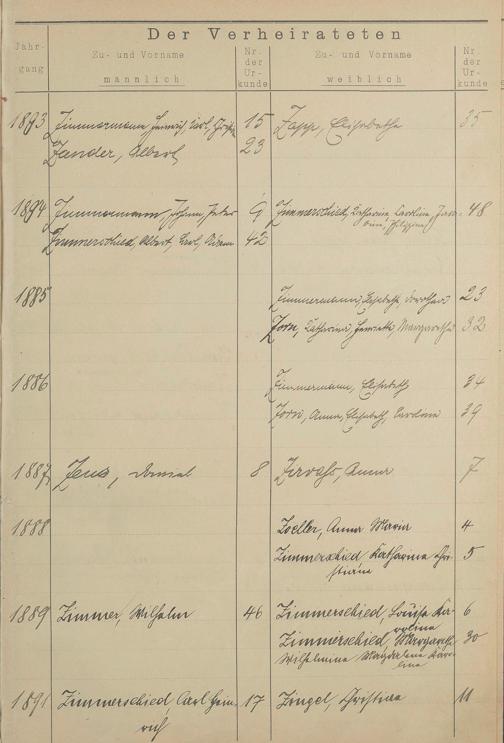 Der Verheirateten
Jahr-
gang
Zu- und Vorname
männlich
Nr.
der
Ur-
kunde
Zu- und Vorname
weiblich
Nr.
der
Ur-
kunde
1893 Zimmermann, Heinrich, Karl, 15 Zapp, Elisabethe 35
Zander, Albert 23
1894 Zimmermann, Johann, Peter 9 Zimmerschied, Katharine, Caroline, 48
Philippine
Zimmerschied, Albert, Karl, Adam 42
1885 Zimmermann, Elisabeth Dorothea 23
Zorn, Katharina, Henriette, Margarethe 32
1886 Zimmermann, Elisabeth 34
Zorn, Anna, Elisabeth, Carolina 39
1887 Zeus, 8 Zervass, Anna 7
1888 Zoeller, Anna Maria 4
Zimmerschied, Katharina Chri- 5
stiane
1889 Zimmer, Wilhelm 46 Zimmerschied, Louise Ka- 6
roline
Zimmerschied, Margarethe 30
Wilhelmine Magdalena Karo-
line
1891 Zimmerschied, Carl Hein- 17 Zingel, Christine 11
rich